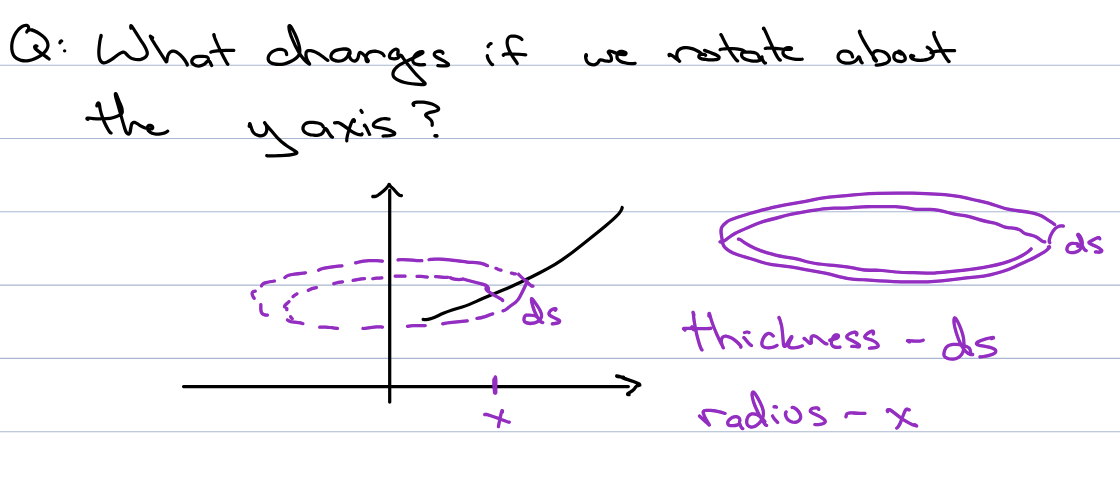 Q: What changes if we rotate about
the y axis?
ds
ds
thickness - ds
radius - x
x